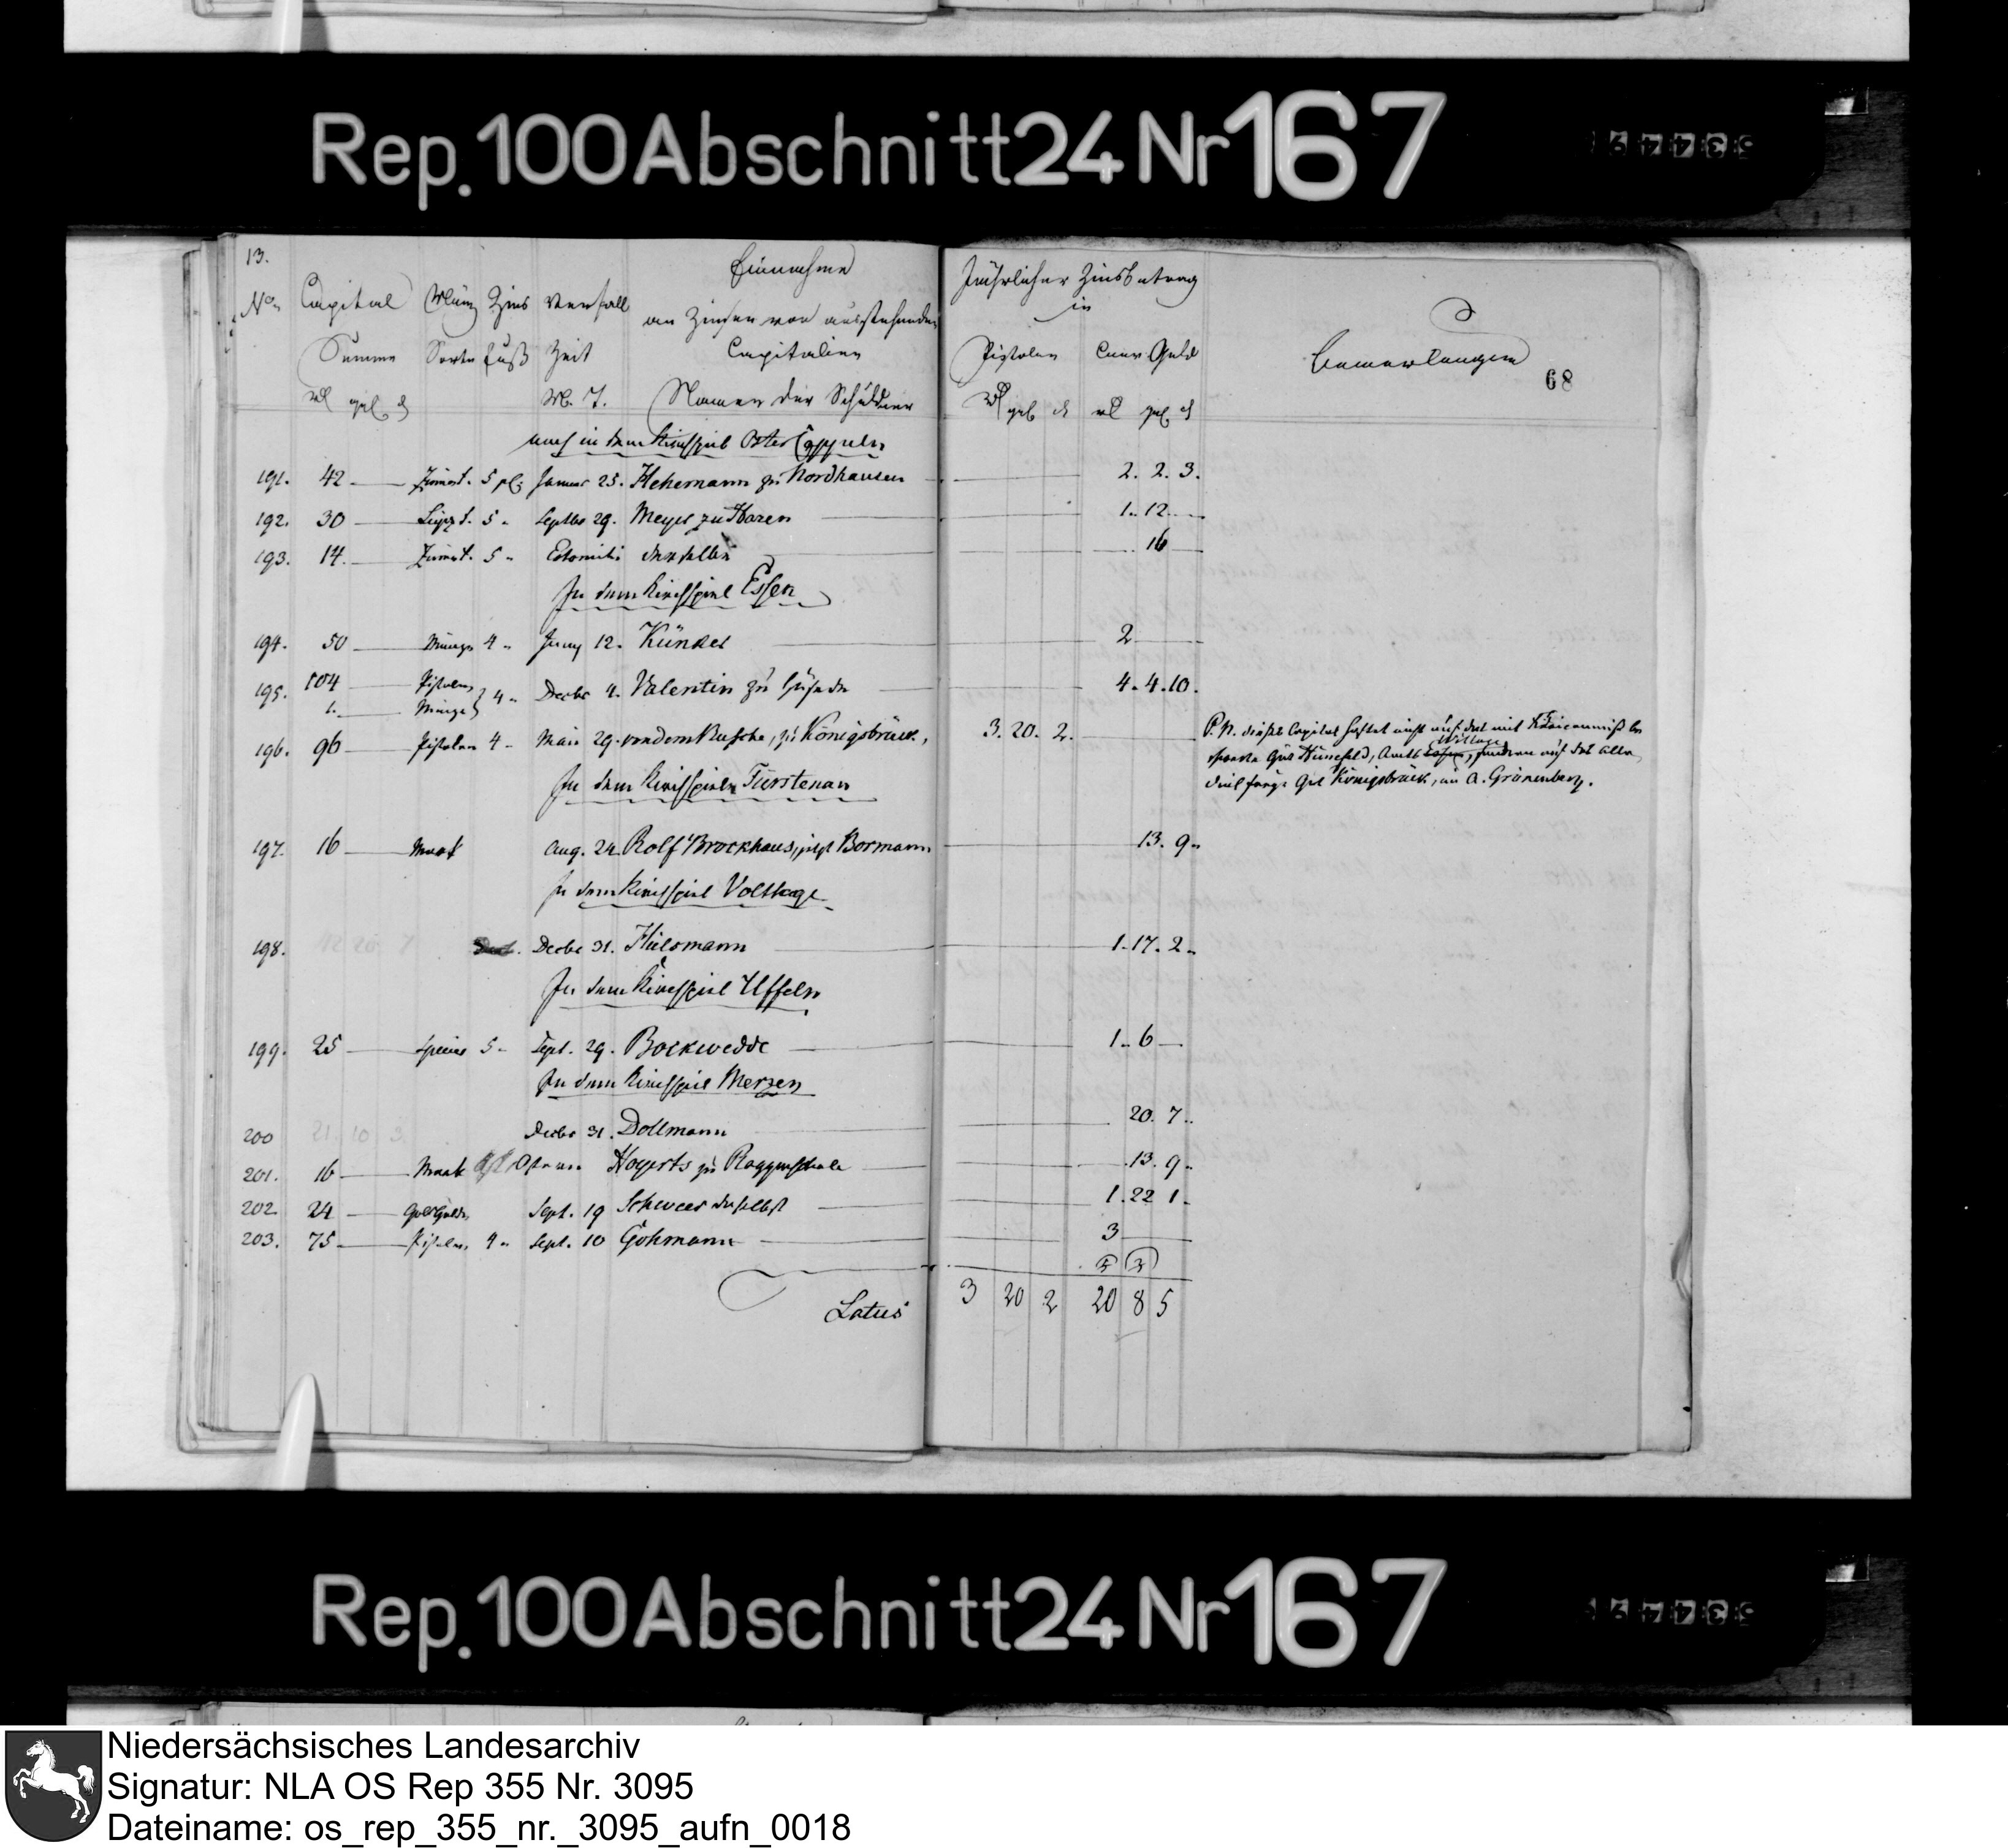 Rep. 100 Abschnitt 24 Nr 167
13.
Einnahme
Jährlicher Zinsbetrag
No. Capital Münz Zins Verfall
an Zinsen von ausstehenden
in
Summe Sorte fuß Zeit
Capitalien
Pistolen Cour. Geld
Bemerkungen
68
M. T. Namen der Schuldner
noch in dem Kirchspiel Ostercappeln
191. 42 5 Januar 25. Hehemann zu Nordhausen 2. 2. 3.
192. 30 5 Septbr 29. Meyer zu Haren 1. 12.
193. 14. 5 Estomihi derselbe 16
In dem Kirchspiel Essen
194. 50 Münze 4 Juny 12. Künker 2
195. 104 Pistolen
1. Münze 4 Decbr 4. Valentin zu 4. 4. 10.
196. 96 Pistolen 4 Mai 29. von dem Bussche, zu Königsbrück, 3. 20. 2.
P. N. dieses Capital haftet nicht auf das mit
Gut Hünnefeld, Amts Essen, Wittlage sondern auf das
Gut Königsbrück, im A. Grönenberg.
In dem Kirchspiele Fürstenau
197. 16 Mark Aug. 24 Rolf Brockhaus, jetzt Bormann 13. 9.
In dem Kirchspiel Voltlage
198. 12 20 7 Decbr 31. Hülsmann 1. 17. 2.
In dem Kirchspiel Uffeln
199. 25 Species 5 Sept. 29. Bockwedde 1. 6
In dem Kirchspiel Merzen
200 21 10 3. Decbr 31. Dollmann 20. 7.
201. 16 Mark Ostern Hoyerts zu 13. 9.
202 24 Goldgulden Sept. 19 Schweer daselbst 1. 22 1.
203. 75 Pistolen 4 Sept. 10 Gohmann 3
Latus 3 20 2 20 8 5
Rep. 100 Abschnitt 24 Nr 167
Niedersächsisches Landesarchiv
Signatur: NLA OS Rep 355 Nr. 3095
Dateiname: os_rep_355_nr._3095_aufn_0018